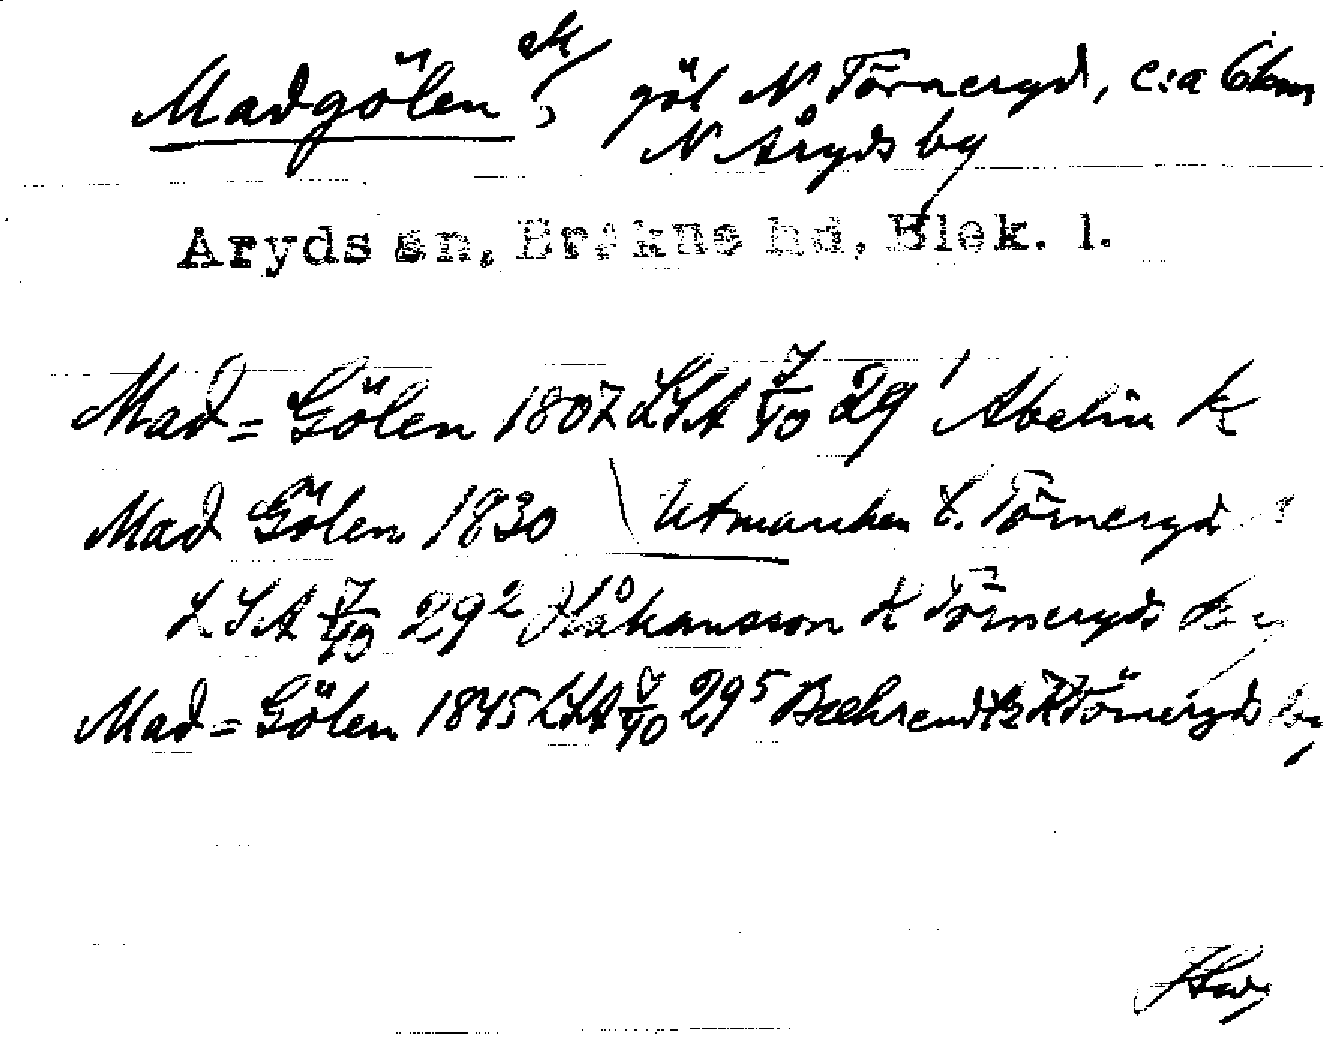 Madgölen ek, göl N Törneryd, c:a 6 km
N Åryds by
Åryds sn, Bräkne hd, Blek. l.
Mad= Gölen 1807 LSA 7/40 29¹ Abelin k
Mad Gölen 1830 Utmarken t. Törneryd
LSA 7/40 29² Håkansson k Törneryds
Mad= Gölen 1845 LSA 7/40 29⁵ Bæhrendtz k Törneryds by